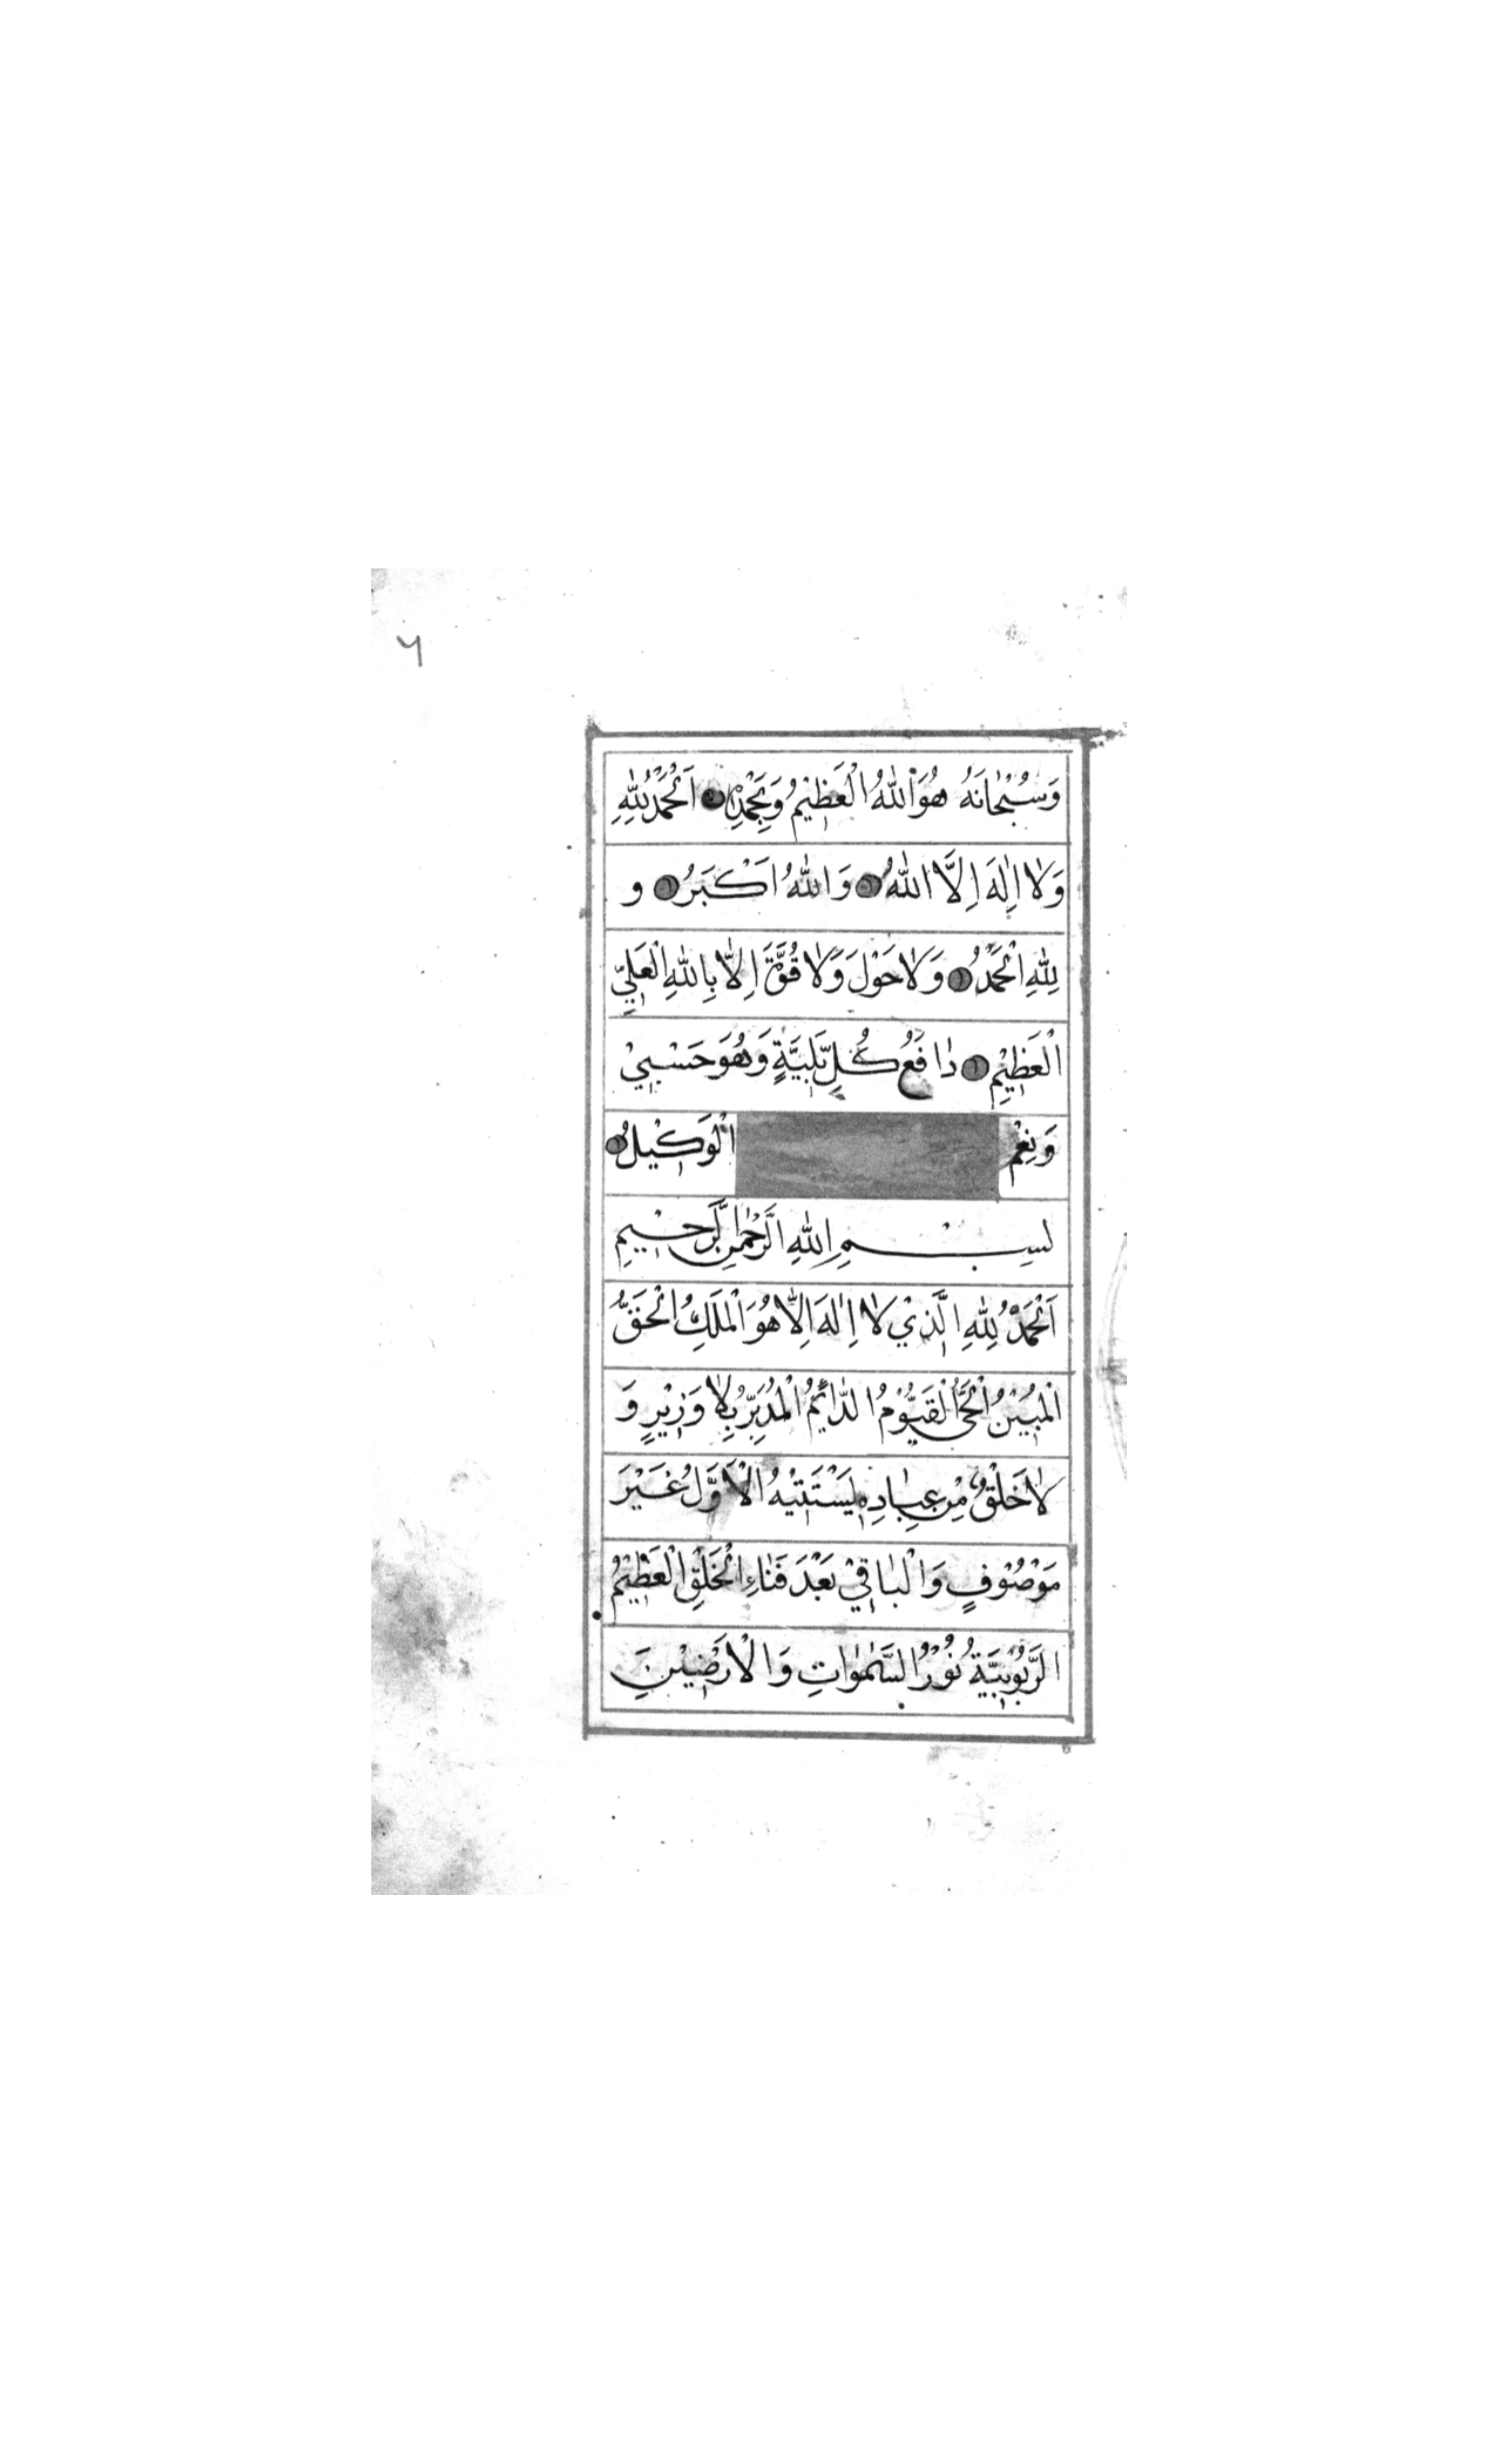 ۲
وَسُبْحٰانَهُ هُوَاللهُ الْعَظِيْمُ وَبِحَمْدِهِ اَلْحَمْدُ لِلّٰهِ
وَلٰا اِلٰهَ اِلَّا اللهُ وَاللهُ اَكْبَرُ و
لِلّٰهِ الْحَمْدُ وَلٰا حَوْلَ وَلٰا قُوَّةَ اِلّٰا بِاللهِ الْعَلِيِّ
الْعَظِيْمِ دٰافِعُ كُلِّ بَلِيَّةٍ وَهُوَ حَسْبِيْ
وَنِعْمَ الْوَكِيْلُ
بِسْمِ اللهِ الرَّحْمٰنِ الرَّحِيْمِ
اَلْحَمْدُ لِلّٰهِ الَّذِيْ لٰا اِلٰهَ اِلّٰا هُوَ الْمَلِكُ الْحَقُّ
الْمُبِيْنُ الْحَيُّ الْقَيُّوْمُ الدّٰائِمُ الْمُدَبِّرُ بِلٰا وَزِيْرٍ وَ
لٰا خَلْقٍ مِنْ عِبٰادِهِ يَسْتَتِيْهُ الْاَوَّلُ غَيْرَ
مَوْصُوْفٍ وَالْبٰاقِيْ بَعْدَ فَنٰاءِ الْخَلْقِ الْعَظِيْمُ
الرَّبُوْبِيَّةُ نُوْرُ السَّمٰوٰاتِ وَالْاَرَضِيْنَ